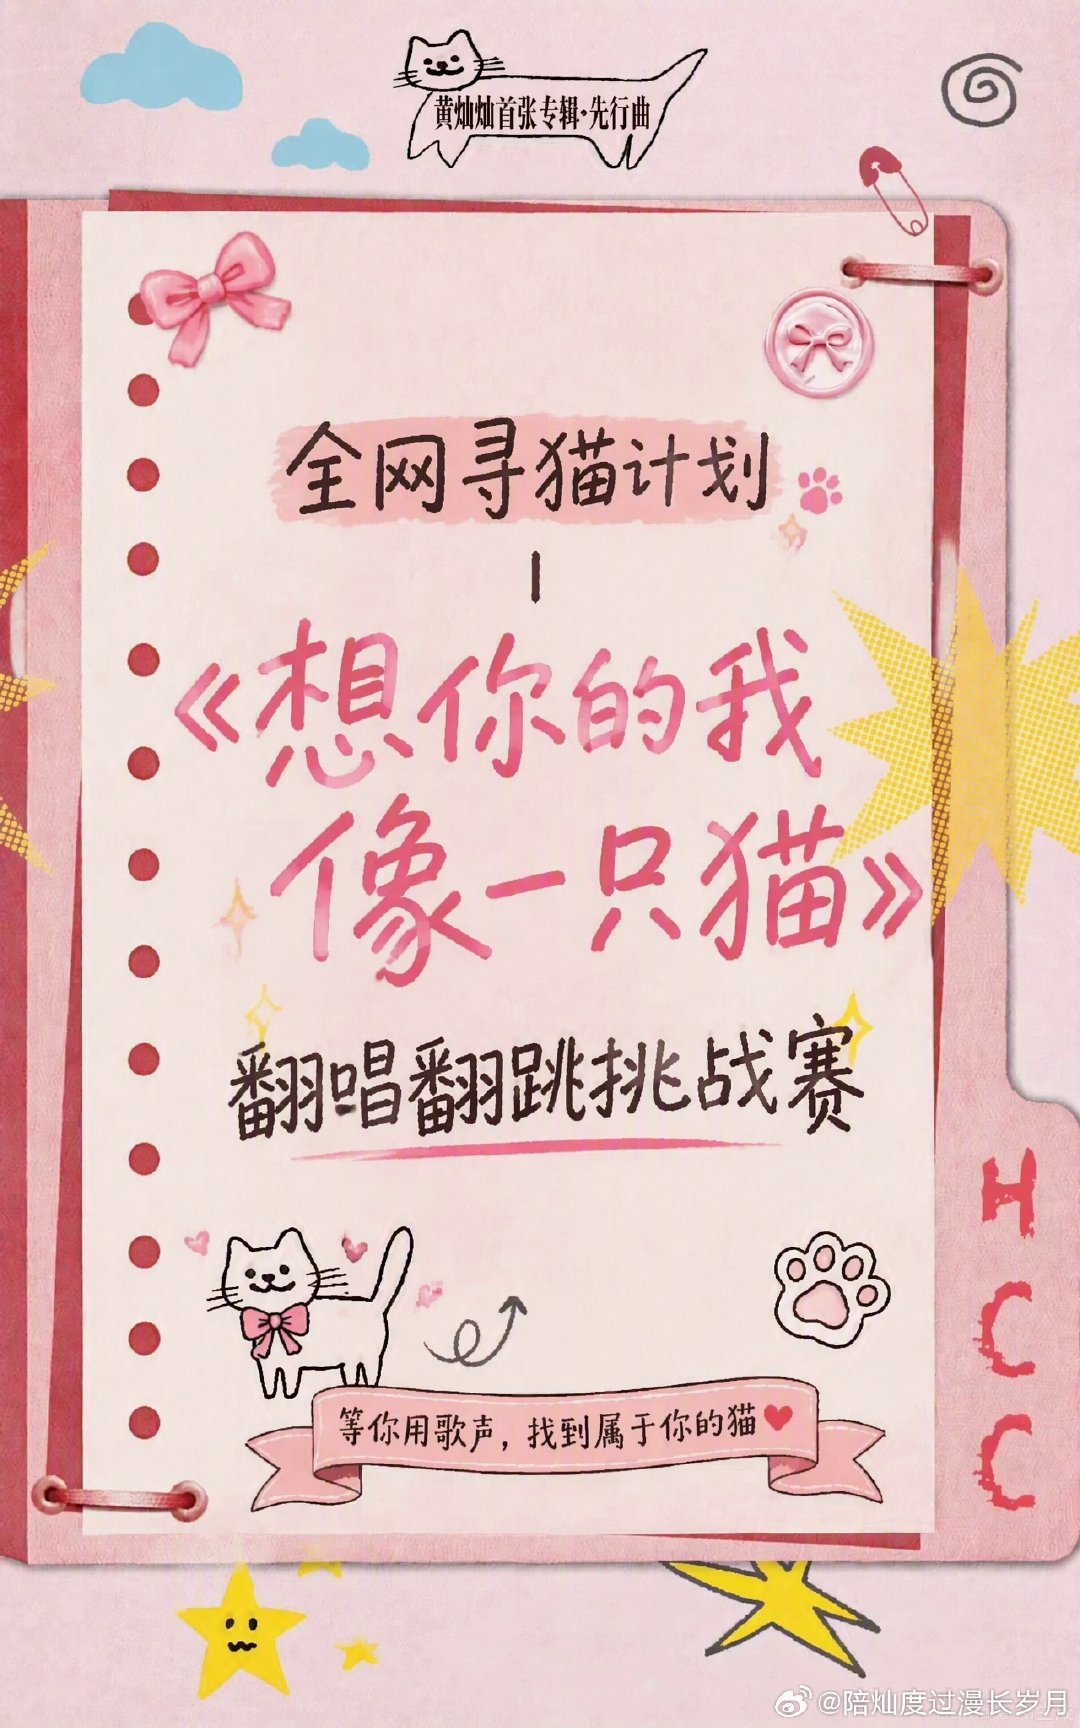 黄灿灿首张专辑·先行曲
全网寻猫计划
《想你的我
像一只猫》
翻唱翻跳挑战赛
HCC
等你用歌声，找到属于你的猫
@陪灿度过漫长岁月